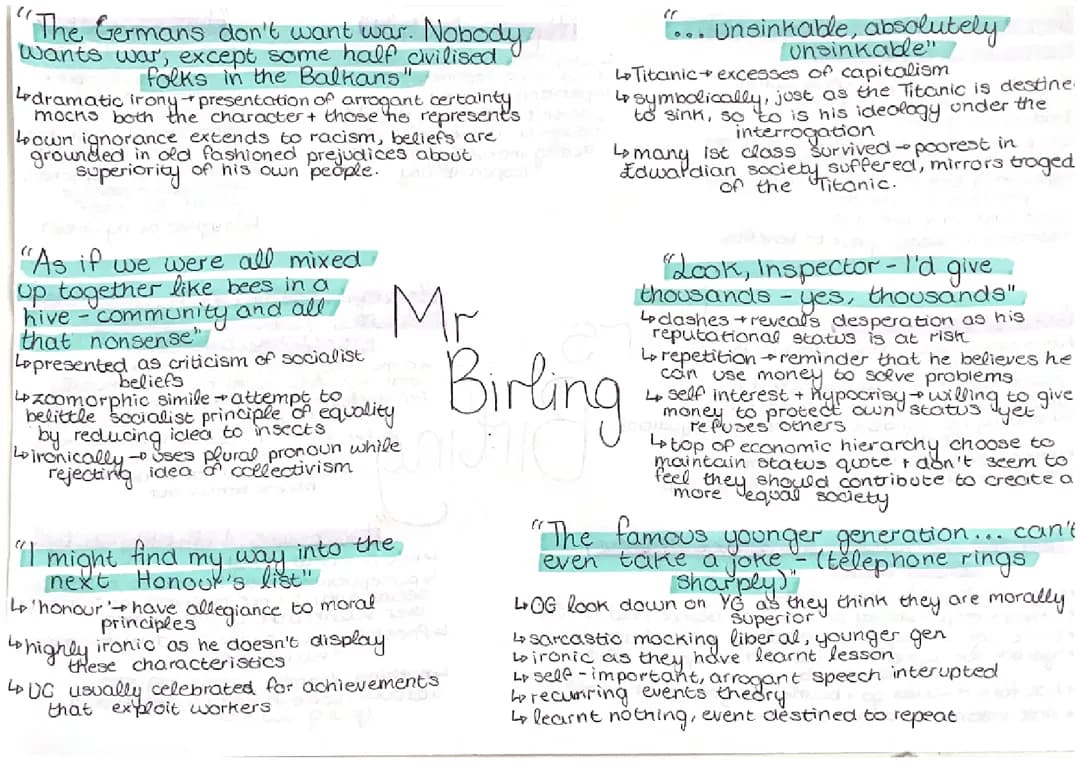 "The Germans don't want war. Nobody
wants war, except some half civilised
folks in the Balkans"
↳dramatic irony→presentation of arrogant certainty
mocks both the character + those he represents
↳own ignorance extends to racism, beliefs are
grounded in old fashioned prejudices about
superiority of his own people.
"... unsinkable, absolutely
unsinkable"
↳Titanic→excesses of capitalism
↳symbolically, just as the Titanic is destine
to sink, so to is his ideology under the
interrogation
↳many 1st class survived→poorest in
Edwardian society suffered, mirrors traged
of the Titanic.
"As if we were all mixed
up together like bees in a
hive - community and all
that nonsense"
↳presented as criticism of socialist
beliefs
↳zoomorphic simile→attempt to
belittle socialist principle of equality
by reducing idea to insects
↳ironically→uses plural pronoun while
rejecting idea of collectivism
Mr
Birling
"Look, Inspector - I'd give
thousands - yes, thousands"
↳dashes→reveals desperation as his
reputational status is at risk
↳repetition→reminder that he believes he
can use money to solve problems
↳self interest + hypocrisy→willing to give
money to protect own status yet
refuses others
↳top of economic hierarchy choose to
maintain status quote + don't seem to
feel they should contribute to create a
more equal society
"I might find my way into the
next Honour's list"
↳'honour'→have allegiance to moral
principles
↳highly ironic as he doesn't display
these characteristics
↳UC usually celebrated for achievements
that exploit workers
"The famous younger generation... can't
even take a joke - (telephone rings
sharply)"
↳OG look down on YG as they think they are morally
superior
↳sarcastic mocking liberal, younger gen
↳ironic as they have learnt lesson
↳self-important, arrogant speech interupted
↳recurring events theory
↳learnt nothing, event destined to repeat